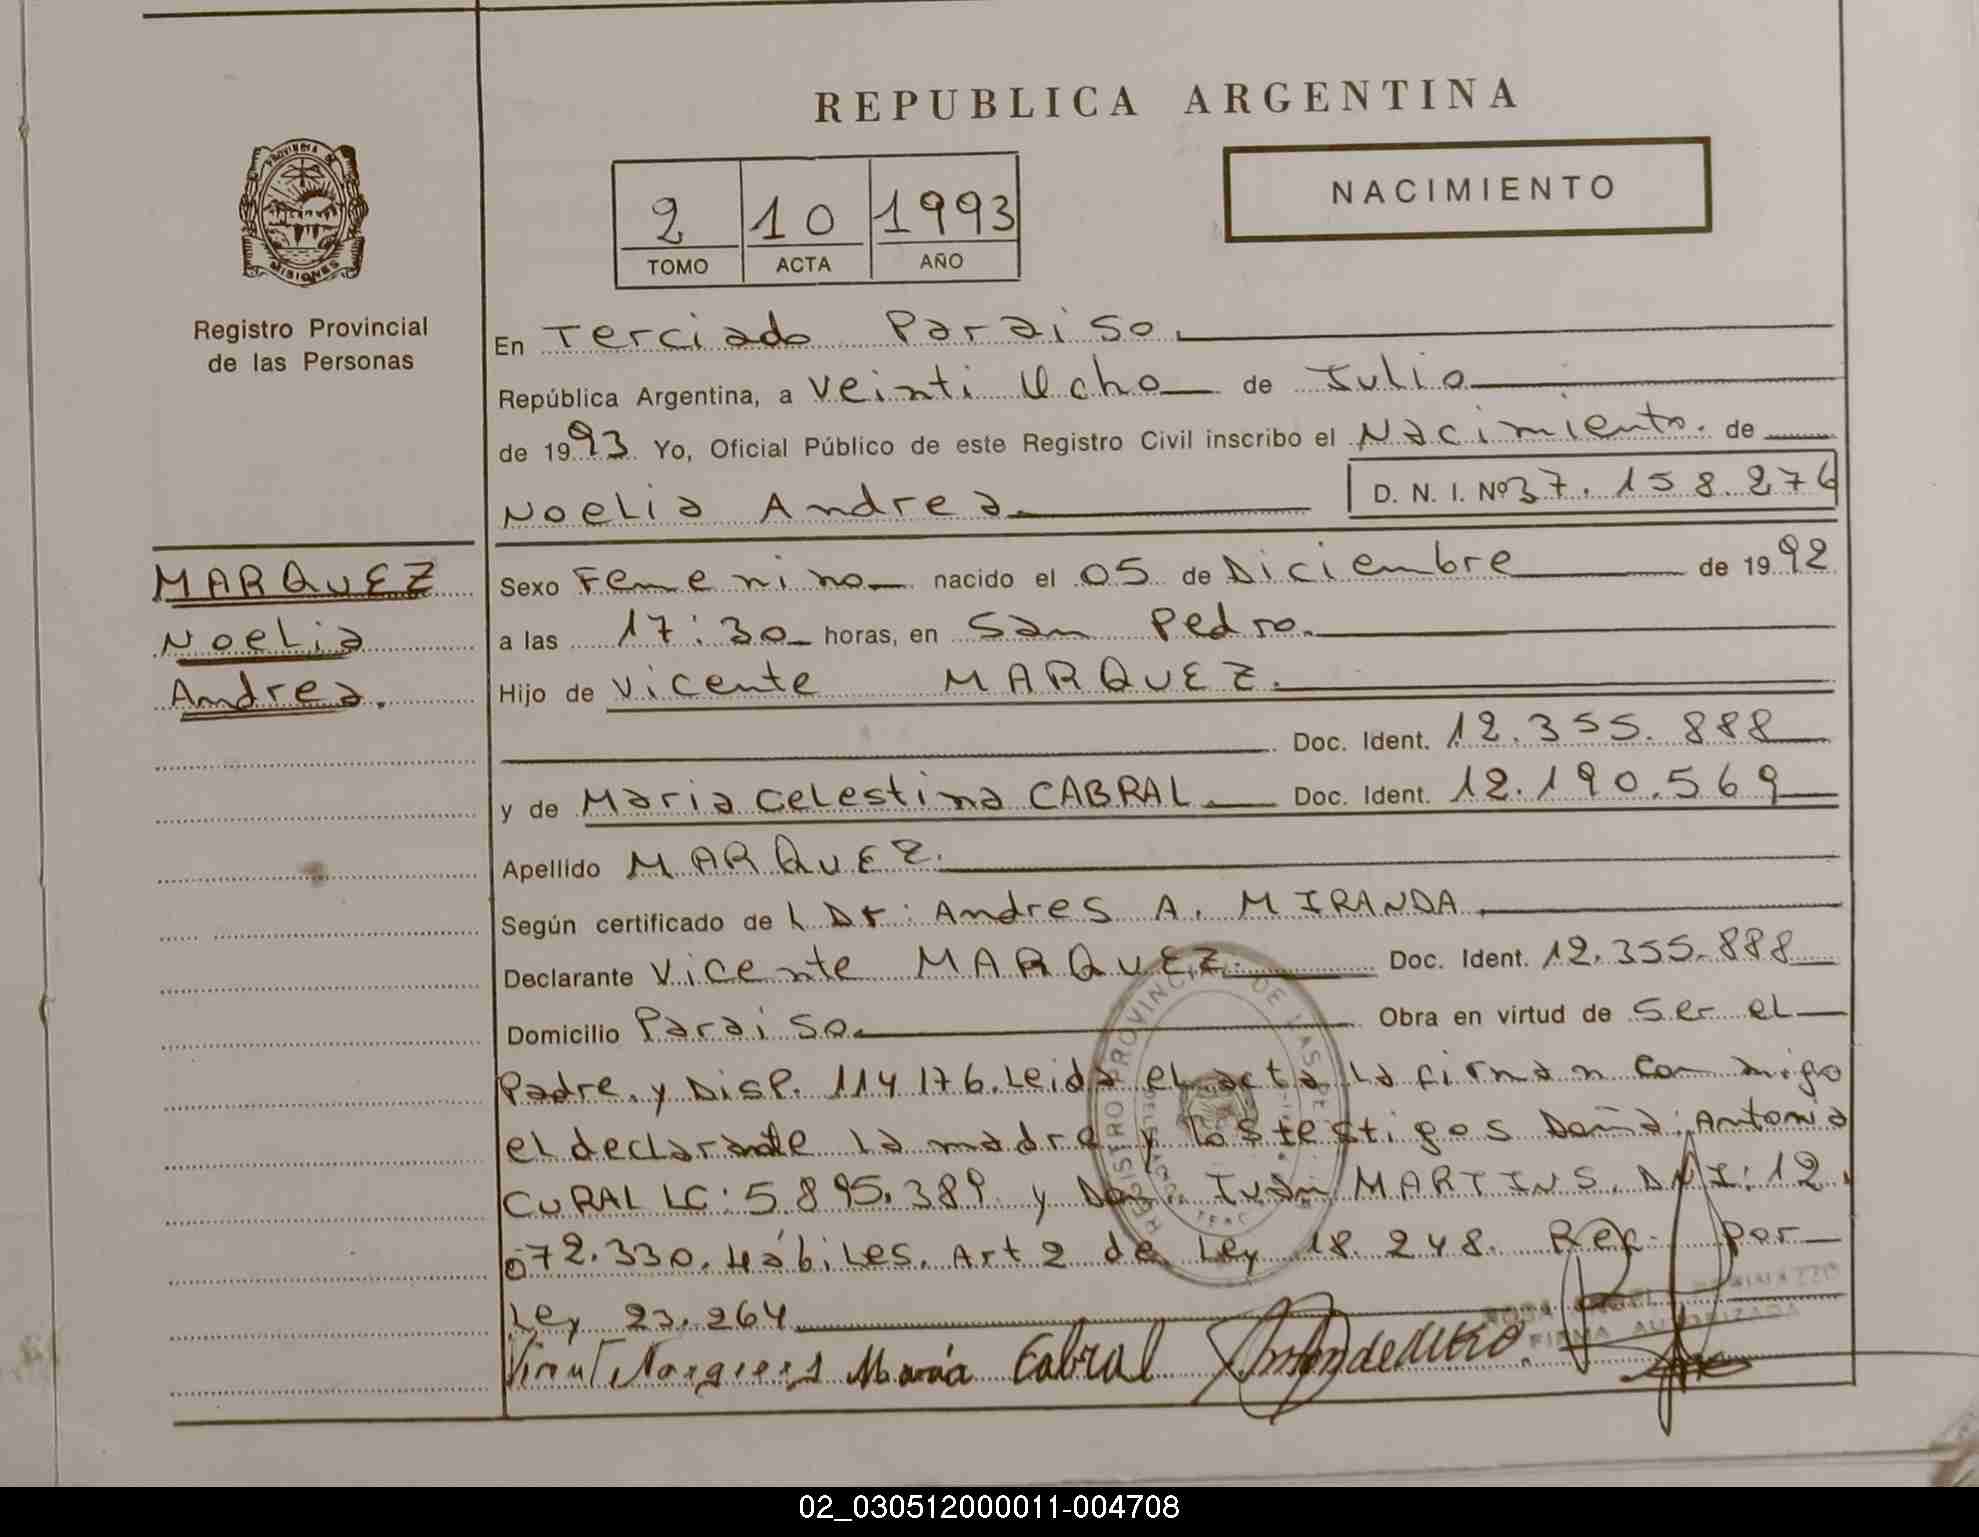 REPUBLICA ARGENTINA
NACIMIENTO
2 10 1993
TOMO ACTA AÑO
PROVINCIA DE
MISIONES
Registro Provincial
de las Personas
En Terciado Paraiso.
República Argentina, a Veinti Ocho de Julio
de 1993 Yo, Oficial Público de este Registro Civil inscribo el Nacimiento. de
Noelia Andrea. D. N. I. Nº 37.158.276
MARQUEZ
Noelia
Andrea.
Sexo Femenino nacido el 05 de Diciembre de 1992
a las 17:30 horas, en San Pedro.
Hijo de Vicente MARQUEZ.
Doc. Ident. 12.355.888
y de Maria Celestina CABRAL. Doc. Ident. 12.190.569
Apellido MARQUEZ.
Según certificado de L Dr: Andres A. MIRANDA
Declarante Vicente MARQUEZ. Doc. Ident. 12.355.888
Domicilio Paraiso. Obra en virtud de Ser el
Padre. y Disp. 114176. Leida el acta la firman con migo
el declarante La madre y los testigos Doña: Antonia
CURAL LC: 5.895.389 y Don: Ivan MARTINS. DNI: 12.
072.330. Hábiles. Art 2 de Ley 18.248. Ref. por
Ley 23.264
María Cabral
REGISTRO PROVINCIAL DE LAS PER
FIRMA AUTORIZADA
02_030512000011-004708